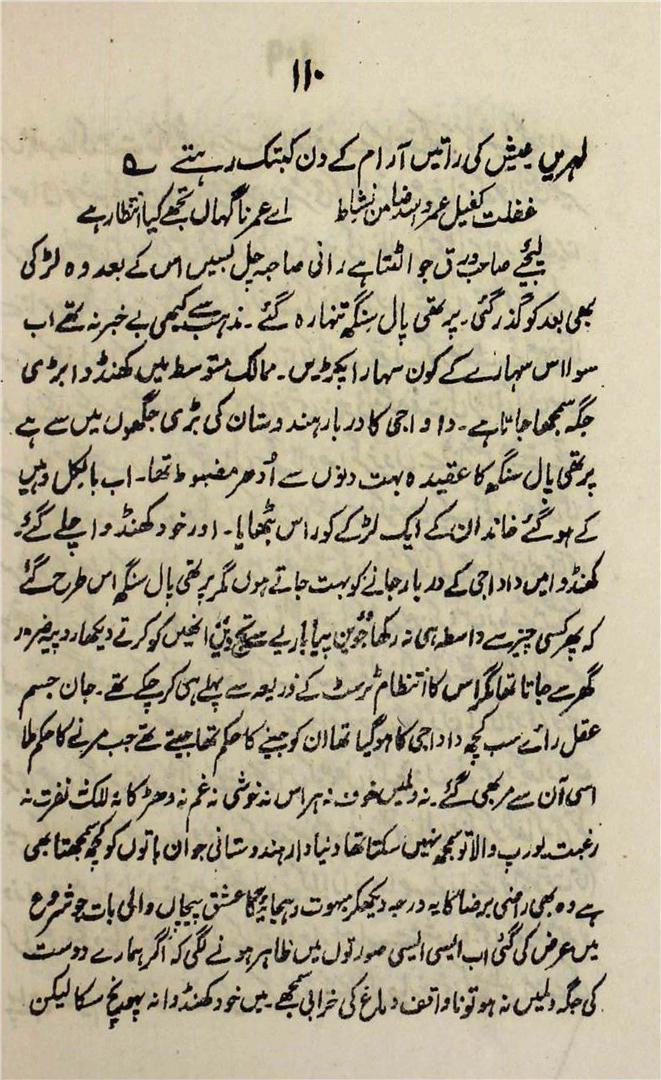 ۱۱۰
لہریں عیش کی راتیں آرام کے دن کبتک رہتے ؎
غفلت کفیل عمر و اسد ضامن نشاط اے عمر ناگہاں تجھے کیا انتظار ہے
لیجئے صاحب ورق جو الٹتا ہے رانی صاحبہ چل بسیں اس کے بعد وہ لڑکی
بھی بعد کو گذر گئی۔ پرتھی پال سنگھ تنہا رہ گئے۔ مذہب سے کبھی بے خبر نہ تھے اب
سوا اس سہارے کے کون سہارا پکڑیں۔ ممالک متوسط میں کھنڈوا بڑی
جگہ سمجھا جاتا ہے۔ داداجی کا دربار ہندوستان کی بڑی جگھوں میں سے ہے
پرتھی پال سنگھ کا عقیدہ بہت دنوں سے اُدھر مضبوط تھا۔ اب بالکل وہیں
کے ہو گئے خاندان کے ایک لڑکے کو راس بٹھایا۔ اور خود کھنڈوا چلے گئے۔
کھنڈوا میں داداجی کے دربار جانے کو بہت جاتے ہوں مگر پرتھی پال سنگھ اس طرح گئے
کہ پھر کسی چیز سے واسطہ ہی نہ رکھا انھیں کو کرتے دیکھا روپیہ ضرور
گھر سے جاتا تھا مگر اس کا انتظام ٹرسٹ کے ذریعہ سے پہلے ہی کر چکے تھے۔ جان جسم
عقل رائے سب کچھ داداجی کا ہو گیا تھا ان کو جینے کا حکم تھا جیتے تھے جب مرنے کا حکم ملا
اسی آن سے مر بھی گئے۔ نہ دلمیں خوف نہ ہراس نہ خوشی نہ غم نہ دھڑکا نہ للک نفرت نہ
رغبت یورپ والا تو سمجھ نہیں سکتا تھا دنیادار ہندوستانی جو ان باتوں کو کچھ سمجھتا بھی
ہے وہ بھی راضی برضا کا یہ درجہ دیکھکر مبہوت رہجائیگا عشق پیچاں والی بات جو شروع
میں عرض کی گئی اب ایسی ایسی صورتوں میں ظاہر ہونے لگی کہ اگر ہمارے دوست
کی جگہ دلمیں نہ ہو تو ناواقف دماغ کی خرابی سمجھے۔ میں خود کھنڈوا نہ پہونچ سکا لیکن